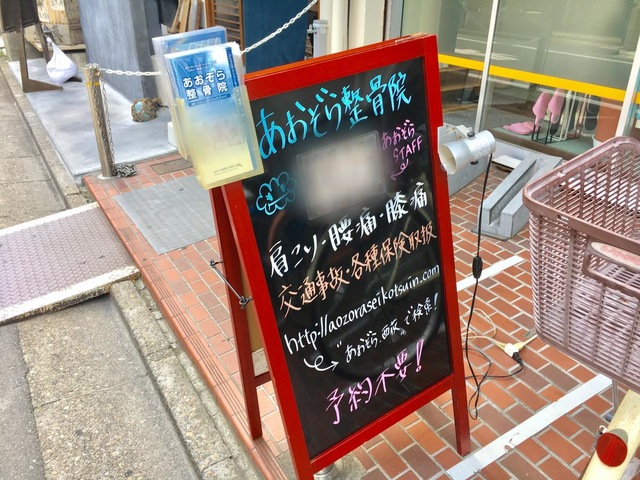 あおぞら
整骨院
あおぞら整骨院
あおぞら
STAFF
肩こり・腰痛・膝痛
交通事故・各種保険取扱
http://aozoraseikotsuin.com
"あおぞら 西阪"で検索!
予約不要!